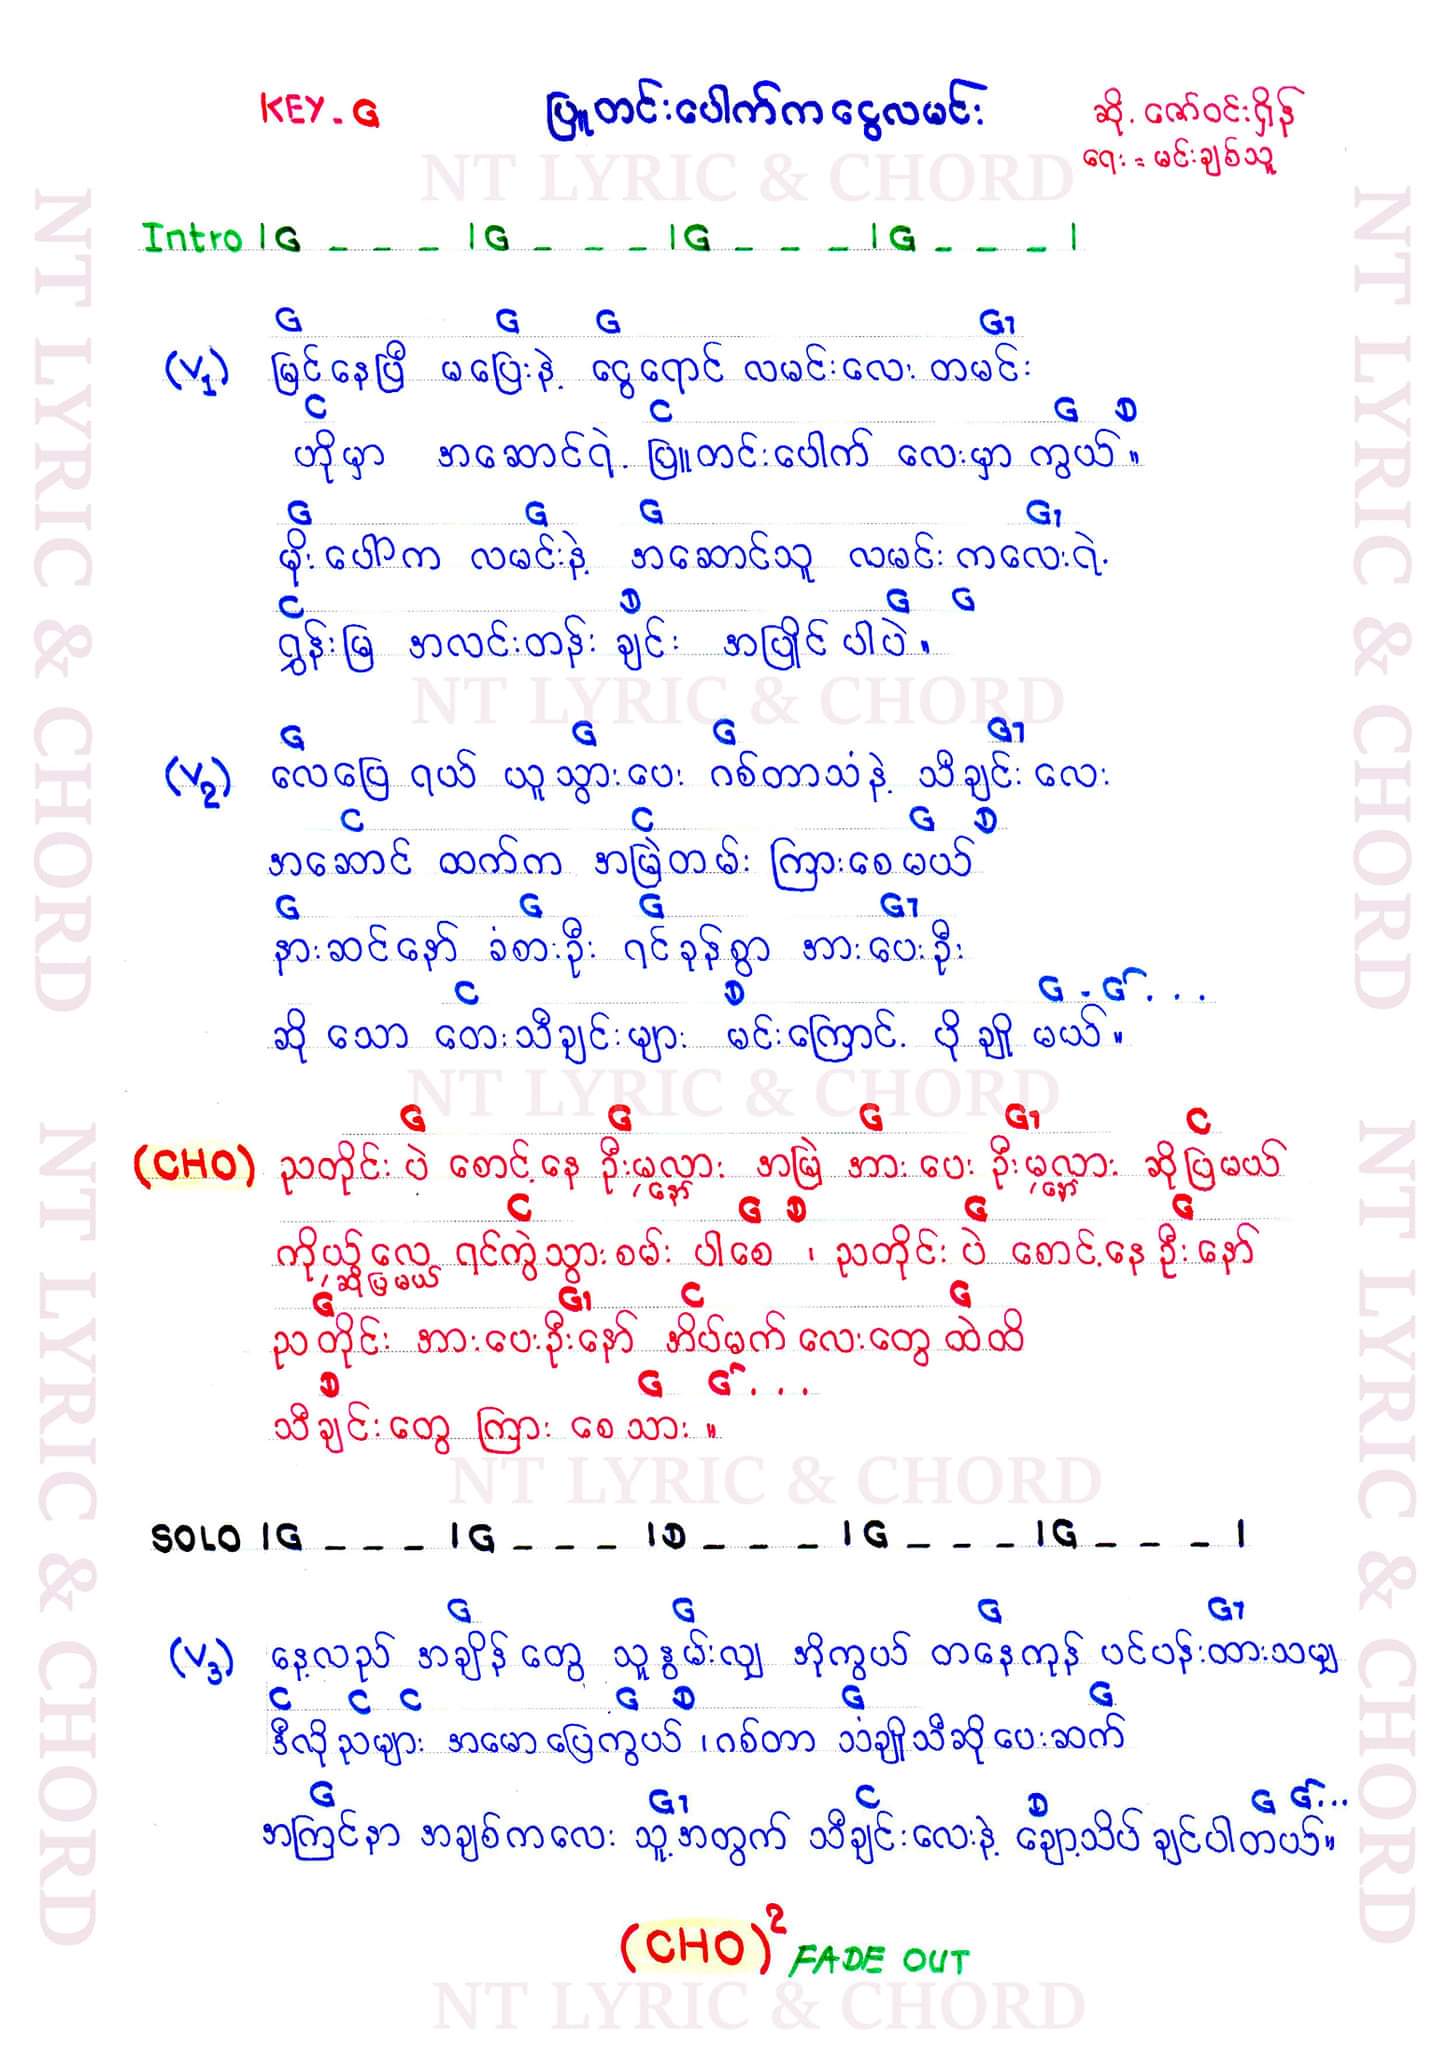 KEY - G
ပြူတင်းပေါက်က ငွေလမင်း
ဆို - ဇော်ဝင်းရှိန်
ရေး = မင်းချစ်သူ
NT LYRIC & CHORD
Intro | G _ _ _ | G _ _ _ | G _ _ _ | G _ _ _ |
G G G G7
(V1) မြင်နေပြီ မပြေးနဲ့ ငွေရောင် လမင်းလေး တမင်း
C C G D
ဟိုမှာ အဆောင်ရဲ့ ပြူတင်းပေါက် လေးမှာ ကွယ်။
G G G G7
မိုးပေါ်က လမင်းနဲ့ အဆောင်သူ လမင်းကလေးရဲ့
C D G G
ရွှန်းမြ အလင်းတန်းချင်း အပြိုင်ပါပဲ။
NT LYRIC & CHORD
G G G G7
(V2) လေပြေရယ် ယူသွားပေး ဂစ်တာသံနဲ့ သီချင်းလေး
C C G D
အဆောင် ထက်က အမြဲတမ်း ကြားစေမယ်
G G G G7
နားဆင်နော် ခံစားဦး ရင်ခုန်စွာ အားပေးဦး
C D G - G ...
ဆိုသော တေးသီချင်းများ မင်းကြောင့် ပိုချိုမယ်။
NT LYRIC & CHORD
G G G G7 C
(CHO) ညတိုင်းပဲ စောင့်နေဦးမှလား အမြဲ အားပေးဦးမှလား ဆိုပြမယ်
နော် နော်
C G D G G
ကိုယ့်လေ ရင်ကွဲသွားစမ်းပါစေ ၊ ညတိုင်းပဲ စောင့်နေဦးနော်
ဆိုပြမယ်
G G7 C G
ညတိုင်း အားပေးဦးနော် အိပ်မက်လေးတွေထဲထိ
D G G ...
သီချင်းတွေ ကြားစေသား။
NT LYRIC & CHORD
SOLO | G _ _ _ | G _ _ _ | D _ _ _ | G _ _ _ | G _ _ _ |
G G G G7
(V3) နေ့လည် အချိန်တွေ သူနွမ်းလျှ အိုကွယ် တနေကုန် ပင်ပန်းထားသမျှ
C C C G D G G
ဒီလိုညများ အမောပြေကွယ် ၊ ဂစ်တာ သံချိုသီဆိုပေးဆက်
G G7 C D G G ...
အကြင်နာ အချစ်ကလေး သူ့အတွက် သီချင်းလေးနဲ့ ချော့သိပ်ချင်ပါတယ်။
(CHO)2 FADE OUT
NT LYRIC & CHORD
NT LYRIC & CHORD
NT LYRIC & CHORD
NT LYRIC & CHORD
NT LYRIC & CHORD